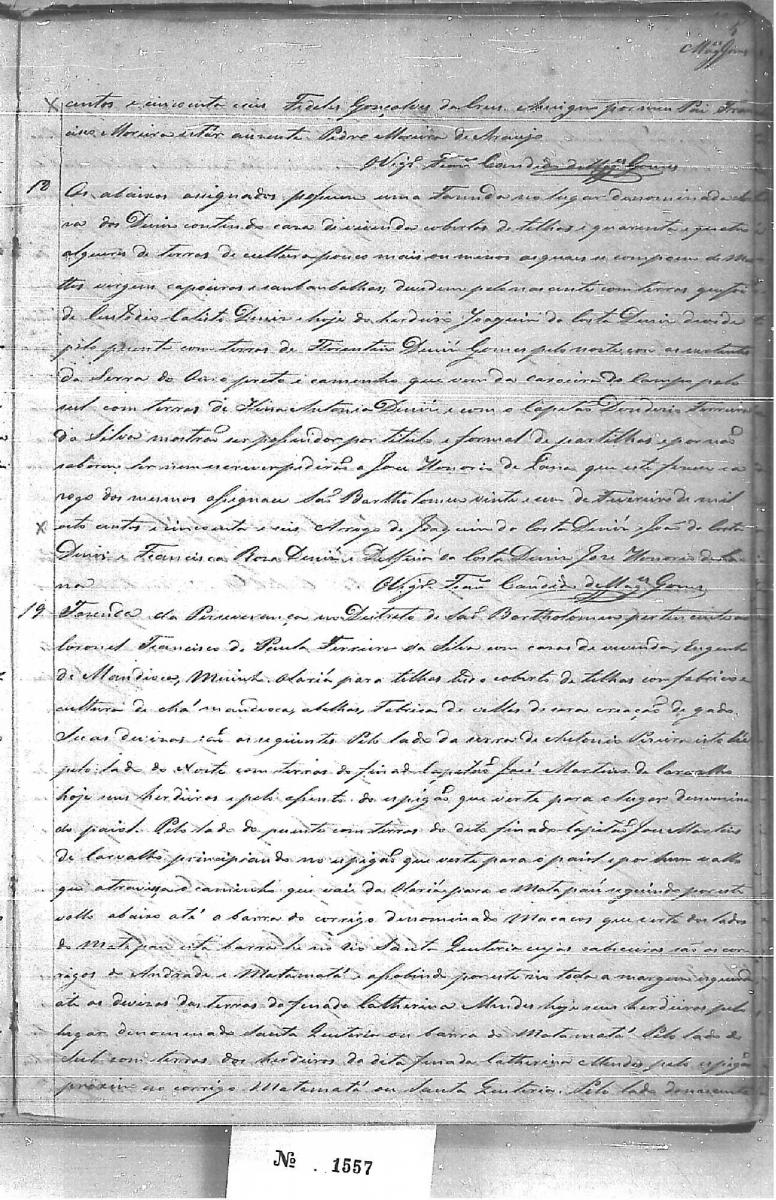 5
Mag.es Gomes
centos e cincoenta e seis Fideles Gonçalves da Crus. Assigno por meu Pai Fran
cisco Moreira estár auzente Pedro Moreira de Araujo
O Vigr.o Fran.co Candido de Mag.es Gomes
18 Os abaixos assignados possuem uma Fazenda no lugar denominado
va dos Diniz contendo casa di vivenda cobertos de telhas e quarenta e quatro
alqueires de terras de cultura pouco mais ou menos as quais se compoem de Ma
ttos virgens capoeiras e sambambalhas, devidem pelo nascente com terras que forão
de Custodio Calisto Diniz e hoje do herdeiro Joaquim da Costa Diniz devide
pelo puente com terras de Florentino Diniz Gomes pelo norte com as vertentes
da Serra do Oiro preto e caminho que vem da caxoeira do Campo pelo
sul com terras de Antonia Diniz e com o Capitão Ferreira
da Silva mostrão ser possuidor por titulo e formal de partilhas e por não
saberem ler nem escrever pidirão a Jose Honorio de Lana que este fizesse e a
rogo dos mesmos assignace São Bartholomeu vinte e um de Fevereiro de mil
oito centos e cincoenta e seis Arrogo de Joaquim da Costa Diniz e João da Costa
Diniz e Francisca Roza Diniz e Delfino da Costa Diniz Jose Honorio de La
na O Vigr.o Fran.co Candido de Mag.es Gomes
19 Fazenda da Perseverança no Districto de São Bartholomeu pertencente ao
Coronel Francisco de Paula Ferreira da Silva com casas de vivenda, Engenho
de Mandioca, Muinho Olaria para telhas tudo coberto de telhas com fabrico e
cultura de chá mandioca, abelhas, Fabrica de vellas de cera creação de gado.
Suas divizas são as seguintes Pelo lado da serra de Antonio Pereira isto hé
pelo lado do Norte com terras do finado Capitão José Martins de Carvalho
hoje seus herdeiros e pelo do espigão que verte para o lugar denomina
do paiol. Pelo lado do puente com terras do dito finado Capitão Jose Martins
de Carvalho principiando no espigão que verte para o paiol e por hum vallo
que atravessa o caminho que vai da Olaria para o Matapau seguindo por este
vallo abaixo até a barra do corrigo denominado Macacos que verte dos lados
do Matapau esta barra he no rio Santa Quiteria cujas cabeceiras são os cor
rigos de Andrade e Matamatá e sobindo por este rio toda a margem esquerda
até as divizas das terras da finada Catherina Mendes hoje seus herdeiros pelo
lugar denominado Santa Quiteria ou barra do Matamatá Pelo lado do
Sul com terras dos herdeiros da dita finada Catherina Mendes pelo espigão
proximo ao corrigo Matamatá ou Santa Quiteria. Pelo lado do nascente
Nº 1557